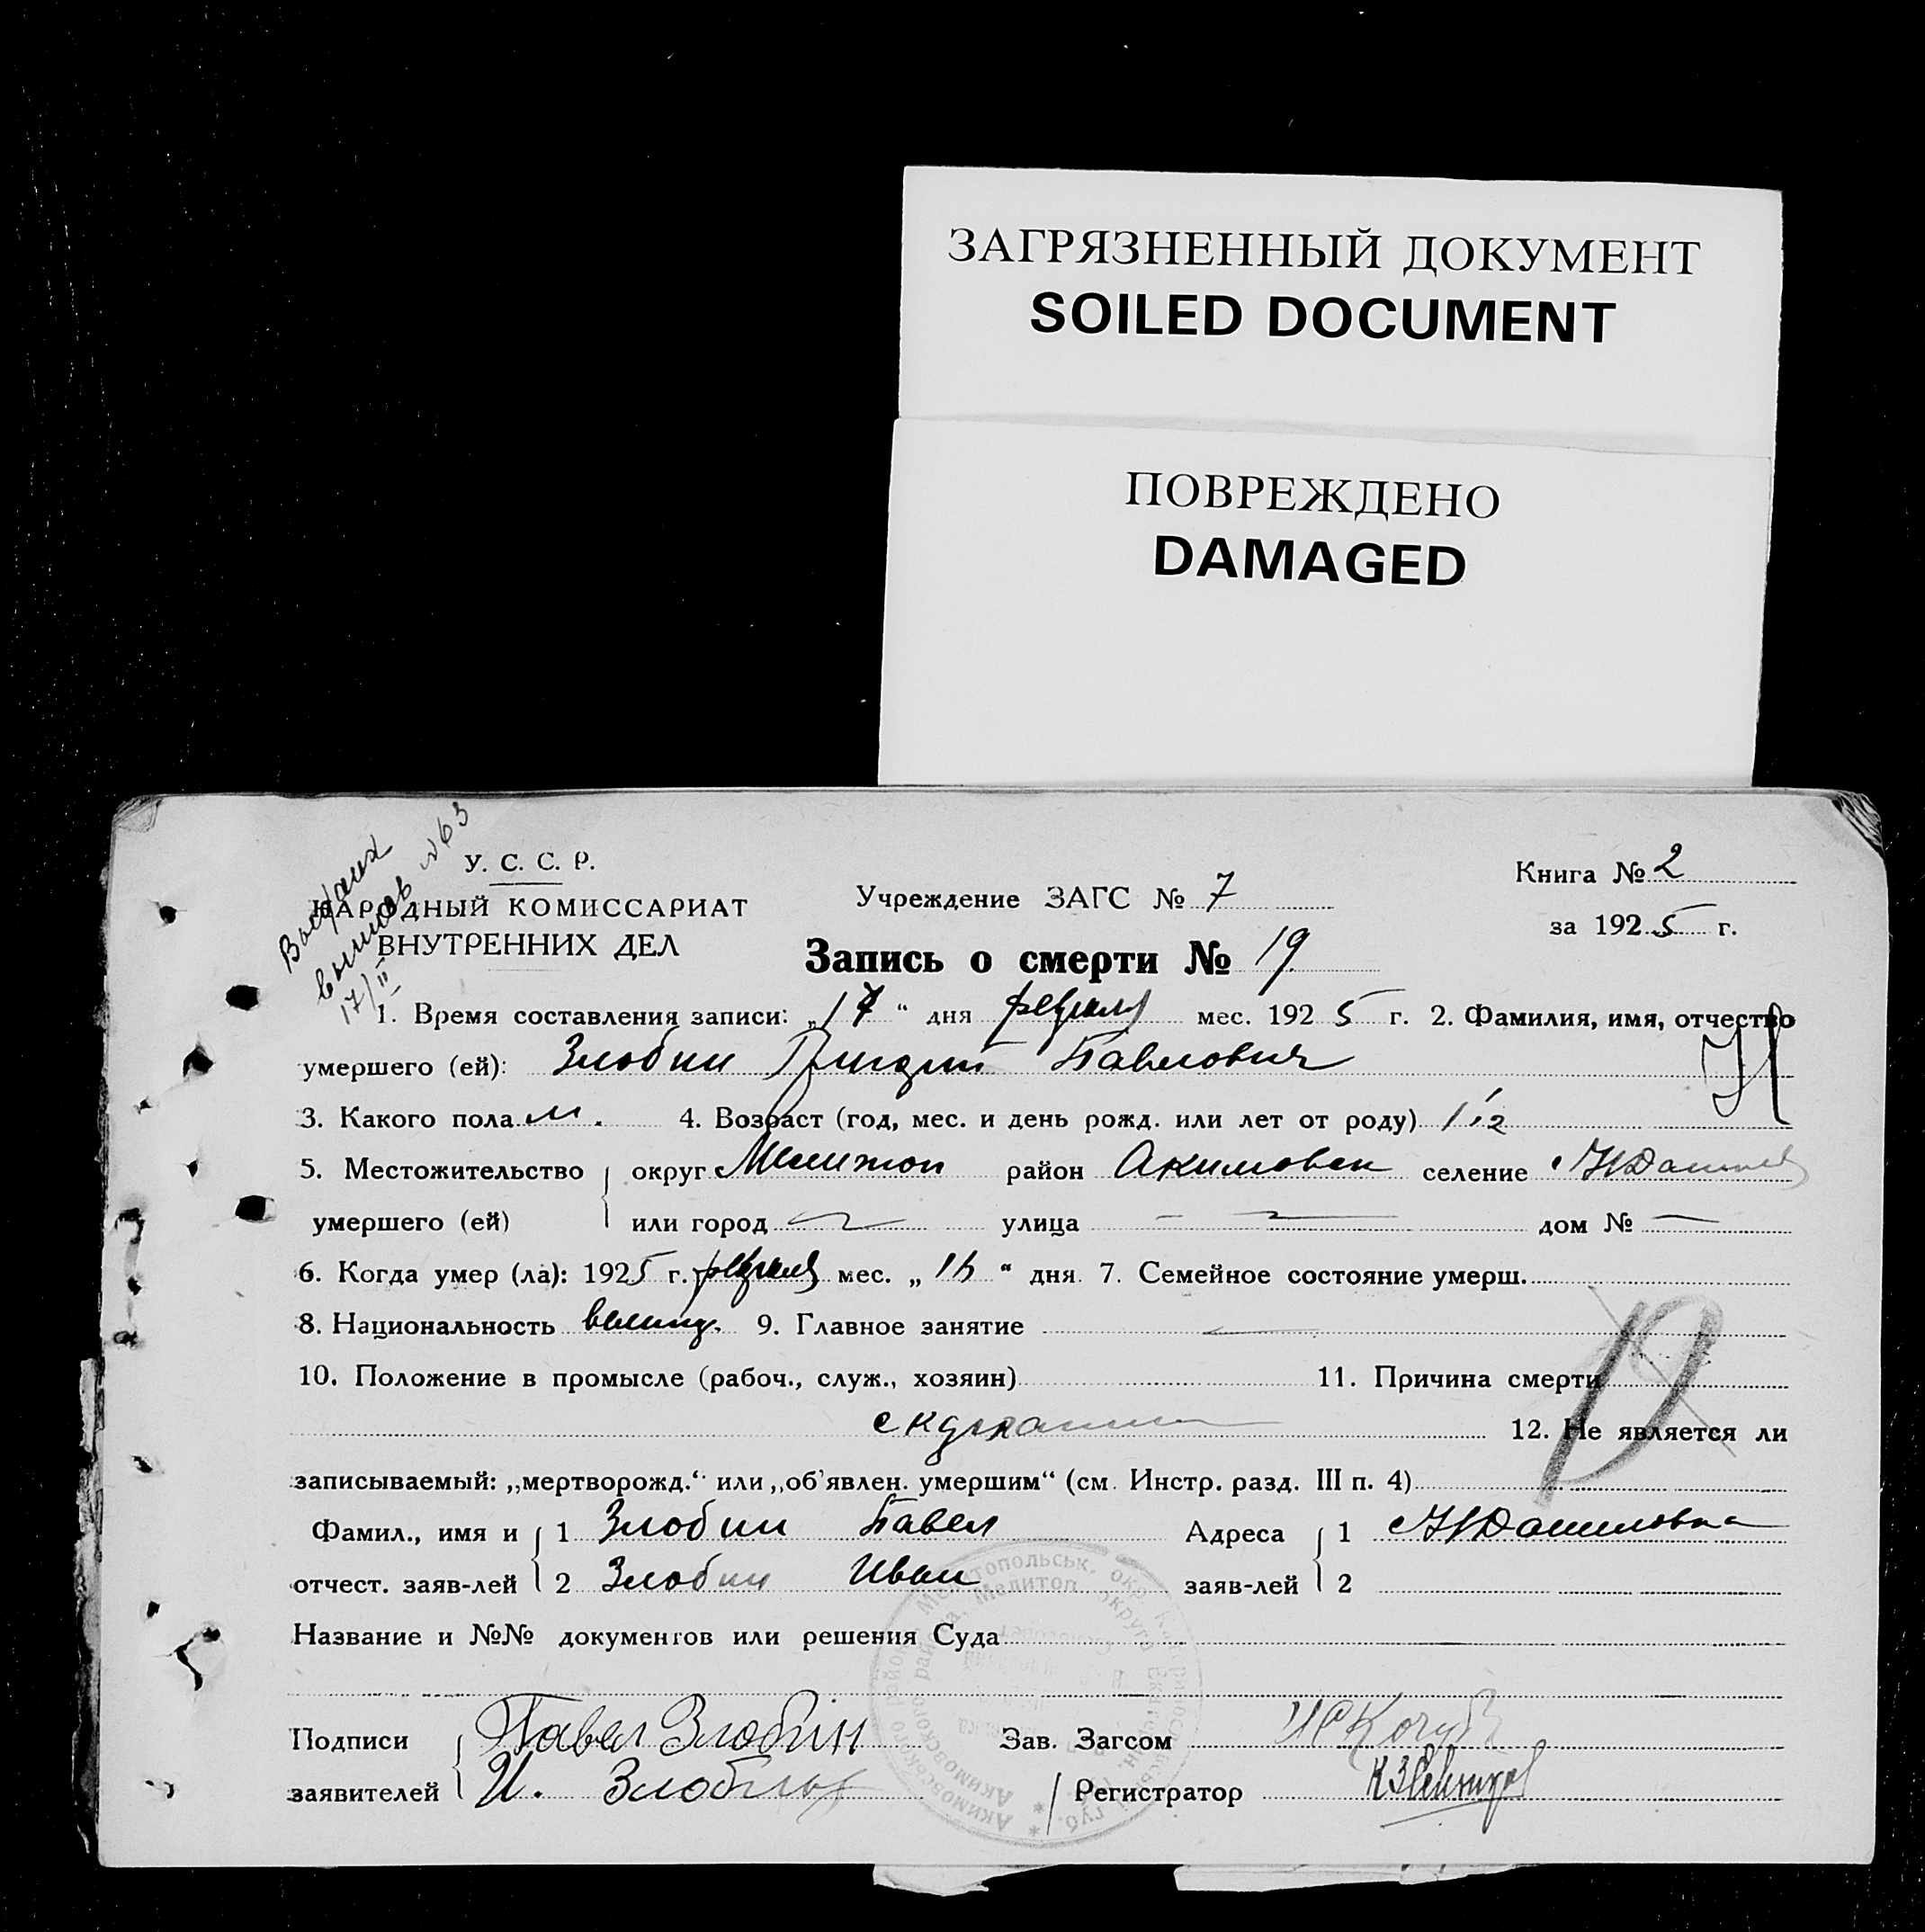 ЗАГРЯЗНЕННЫЙ ДОКУМЕНТ
SOILED DOCUMENT
ПОВРЕЖДЕНО
DAMAGED
№ 63
17/II
У. С. С. Р.
НАРОДНЫЙ КОМИССАРИАТ
ВНУТРЕННИХ ДЕЛ
Учреждение ЗАГС № 7
Книга № 2
за 1925 г.
Запись о смерти № 19
1. Время составления записи: „17“ дня февраля мес. 1925 г. 2. Фамилия, имя, отчество
умершего (ей): Злобин Павлович
3. Какого пола м. 4. Возраст (год, мес. и день рожд. или лет от роду)
5. Местожительство округ Мелитоп район Акимовск селение
умершего (ей) или город улица — дом № —
6. Когда умер (ла): 1925 г. февраля мес. „ “ дня. 7. Семейное состояние умерш.
8. Национальность 9. Главное занятие —
10. Положение в промысле (рабоч., служ., хозяин) 11. Причина смерти
12. Не является ли
записываемый: „мертворожд.“ или „об'явлен. умершим“ (см. Инстр. разд. III п. 4)
Фамил., имя и 1 Злобин Павел Адреса 1 Н Даниловка
отчест. заяв-лей 2 Злобин Иван заяв-лей 2
Название и №№ документов или решения Суда
Подписи Павел Злобін Зав. Загсом
заявителей И. Злобин Регистратор